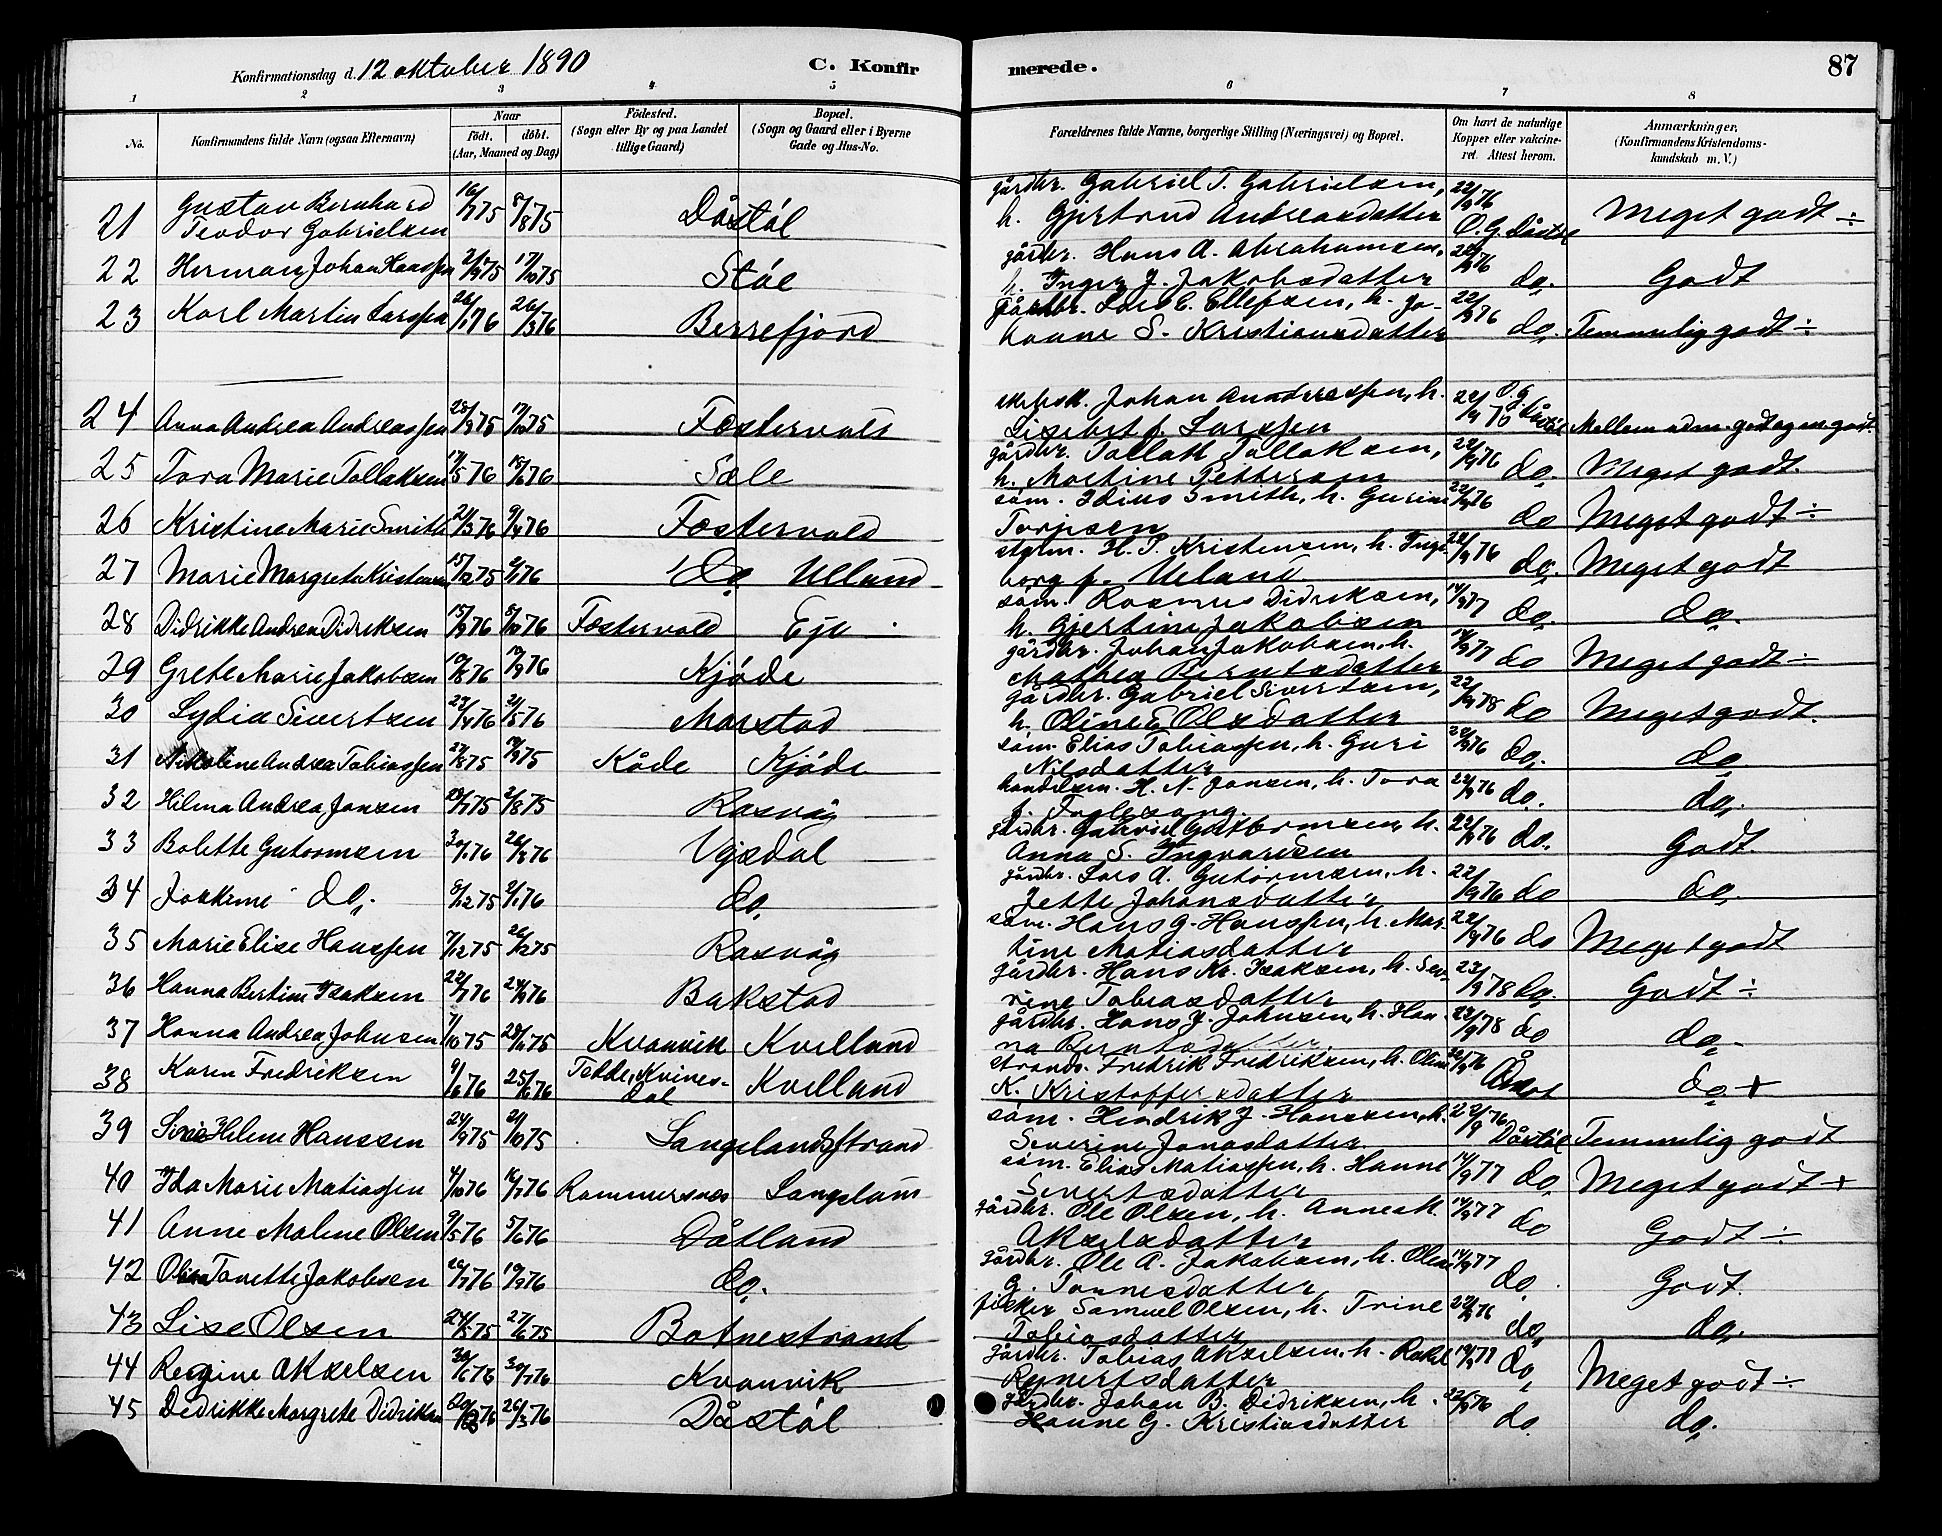 Konfirmationsdag d. 12 oktober 1890
C. Konfirmerede.
87
1 2 3 4 5 6 7 8
No.
Konfirmandens fulde Navn (ogsaa Efternavn)
Naar
födt. döbt.
(Aar, Maaned og Dag)
Födested.
(Sogn eller By og paa Landet
tillige Gaard)
Bopæl.
(Sogn og Gaard eller i Byerne
Gade og Hus-No.
Forældrenes fulde Navne, borgerlige Stilling (Næringsvei) og Bopæl.
Om havt de naturlige
Kopper eller vakcine-
ret. Attest herom.
Anmærkninger.
(Konfirmandens Kristendoms-
kundskab m. V.)
21 Gustav Bernhard Teodor Gabrielsen 16/7 75 8/8 75 Dåstöl gårdbr. Gabriel T. Gabrielsen, h. Gjertrud Andreasdatter 22/9 76 O. G. Dåstöl Meget godt ÷
22 Herman Johan Hanssen 21/9 75 17/10 75 Stöl gårdbr. Hans A. Abrahamsen, h. Inger J. Jakobsdatter 22/9 76 do. Godt
23 Karl Martin Larssen 26/1 76 26/3 76 Berrefjord gårdbr. Lars C. Ellefsen, h. Johanne S. Kristiansdatter 22/9 76 do. Temmelig godt ÷
24 Anna Andrea Andreassen 28/9 75 17/10 75 Fostervold Johan Andreassen, h. Lisebet f. Larssen 22/9 76 O. G. Dåstöl Mellem adm. godt og m. godt.
25 Tora Marie Tollaksen 17/5 76 18/6 76 Sæle gårdbr. Tollak Tollaksen, h. Martine Pettersen 22/9 76 do. Meget godt.
26 Kristine Marie Smith 21/3 76 9/4 76 Fostervold söm. Edias Smith, h. Gurine Torjesen 22/9 76 do Meget godt ÷
27 Marie Margrete Kristensen 15/12 75 9/1 76 do Ulland styrm. H. P. Kristensen, h. Ingeborg f. Ueland 22/9 76 do. Meget godt
28 Didrikke Andrea Didriksen 15/9 76 8/10 76 Fostervold Eje söm. Rasmus Didriksen, h. Gjertine Jakobsen 14/9 77 do. do.
29 Grete Marie Jakobsen 10/8 76 17/9 76 Kjöde gårdbr. Johan Jakobsen, h. Mathea Berntsdatter 14/9 77 do Meget godt ÷
30 Lydia Sivertsen 22/4 76 21/5 76 Marstad gårdbr. Gabriel Sivertsen, h. Oline E Olsdatter 22/9 78 do Meget godt.
31 Nikoline Andrea Tobiassen 27/8 75 19/9 75 Kåde Kjöde söm. Elias Tobiassen, h. Guri Nilsdatter 22/9 76 do. do
32 Hilma Andrea Jansen 2/8 75 Rasvåg handelsm. H. N. Jansen, h. Tora f. Fuglesang. 22/9 76 do. do.
33 Bolette Gutormsen 30/1 76 26/3 76 Ugedal gårdbr. Gabriel Guttormsen, h. Anna S. Ingvartsen 22/9 76 do. Godt.
34 Jokkime do. 8/12 75 2/1 76 do. gårdbr. Lars A. Gutormsen, h. Jette Johansdatter 22/9 76 do do.
35 Marie Elise Hanssen 7/12 75 26/12 75 Rasvåg söm. Hans G. Hanssen, h. Martine Matiasdatter 22/9 76 do Meget godt
36 Hanna Bertine Isaksen 22/7 76 24/9 76 Bakstad gårdbr. Hans Kr. Isaksen, h. Severine Tobiasdatter 23/9 78 do. Godt ÷
37 Hanna Andrea Johnsen 7/10 75 28/11 75 Kvanvik Kvelland gårdbr. Hans J. Johnsen, h. Hanna Berntsdatter. 23/9 78 do do.
38 Karen Fredriksen 9/6 76 25/6 76 Fedde, Kvinesdal Kvelland strands. Fredrik Fredriksen, h. Oline K. Kristoffersdatter do +
39 Sine Helene Hanssen 24/9 75 21/10 75 Langelandsstrand söm. Hendrik J. Hanssen, h. Severine Jonasdatter 22/9 76 Dåstöl Temmelig godt
40 Ida Marie Matiassen 16/7 76 Rammersnes Langeland söm. Elias Matiassen, h. Hanne Severtsdatter 14/9 77 do. Meget godt +
41 Anne Malene Olsen 9/5 76 5/6 76 Dåtland gårdbr. Ole Olsen, h. Anne M. Akselsdatter 14/9 77 do Godt ÷
42 Tonette Jakobsen 20/7 76 10/9 76 do. gårdbr. Ole A. Jakobsen, h. Oline G. Tonnesdatter 14/9 77 do. Godt.
43 Lise Olsen 24/5 75 27/6 75 Botnestrand fisker Samuel Olsen, h. Trine Tobiasdatter 22/9 76 do, do.
44 Regine Akselsen 30/6 76 30/7 76 Kvanvik gårdbr. Tobias Akselsen, h. Rakel Reinertsdatter 14/9 77 do, Meget godt ÷
45 Dedrikke Margrete Didriksen 26/3 76 Dåstöl gårdbr. Johan B. Didriksen, h. Hanne G. Kristiansdatter 22/9 76 do do.